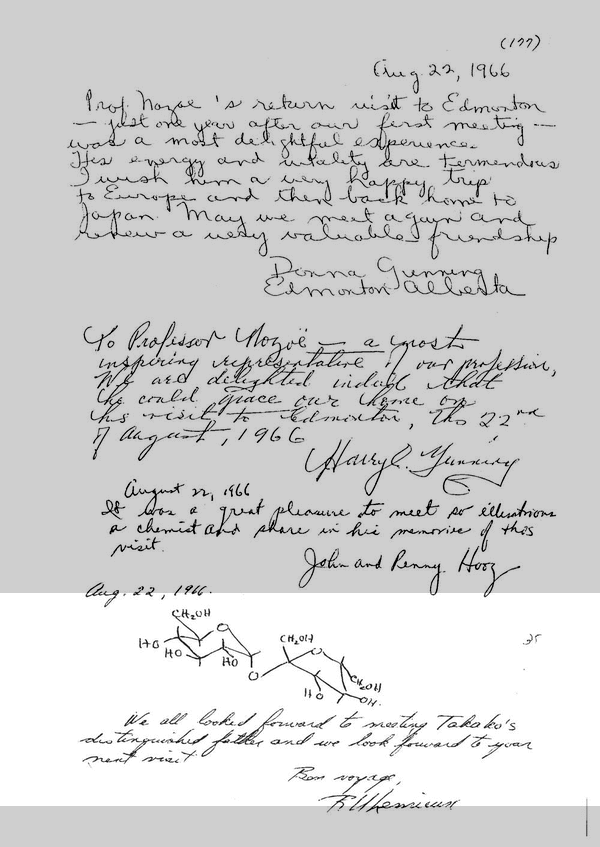 (177)
Aug. 22, 1966
Prof. Nozoe's return visit to Edmonton
— just one year after our first meeting —
was a most delightful experience.
His energy and vitality are termendous
I wish him a very happy trip
to Europe and then back home to
Japan. May we meet again and
renew a very valuable friendship
Donna Gunning
Edmonton Alberta
To Professor Nozoë — a most
inspiring representative of our profession,
We are delighted indeed that
he could grace our home on
his visit to Edmonton, this 22nd
of August, 1966
Harry E. Gunning
August 22, 1966
It was a great pleasure to meet so illustrious
a chemist and share in his memories of this
visit.
John and Penny Hooz
Aug. 22, 1966.
CH2OH
O
HO
HO
HO
O
CH2OH
O
CH2OH
HO
OH.
35
We all looked forward to meeting Takako's
distinguished father and we look forward to your
next visit.
Bon voyage,
R U Lemieux